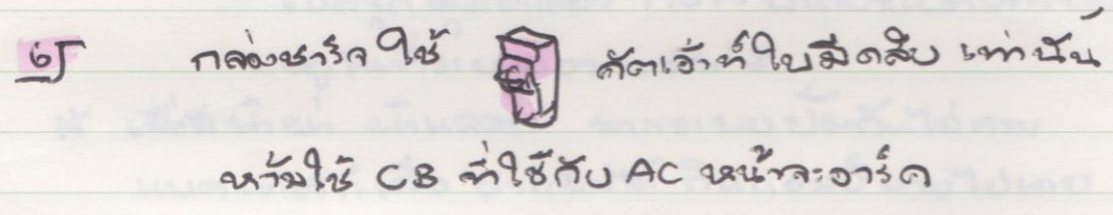 ๖ กล่องชาร์จ ใช้ คัตเอ้าท์ใบมีดสับ เท่านั้น
ห้ามใช้ CB ที่ใช้กับ AC หน้าจะอาร์ค